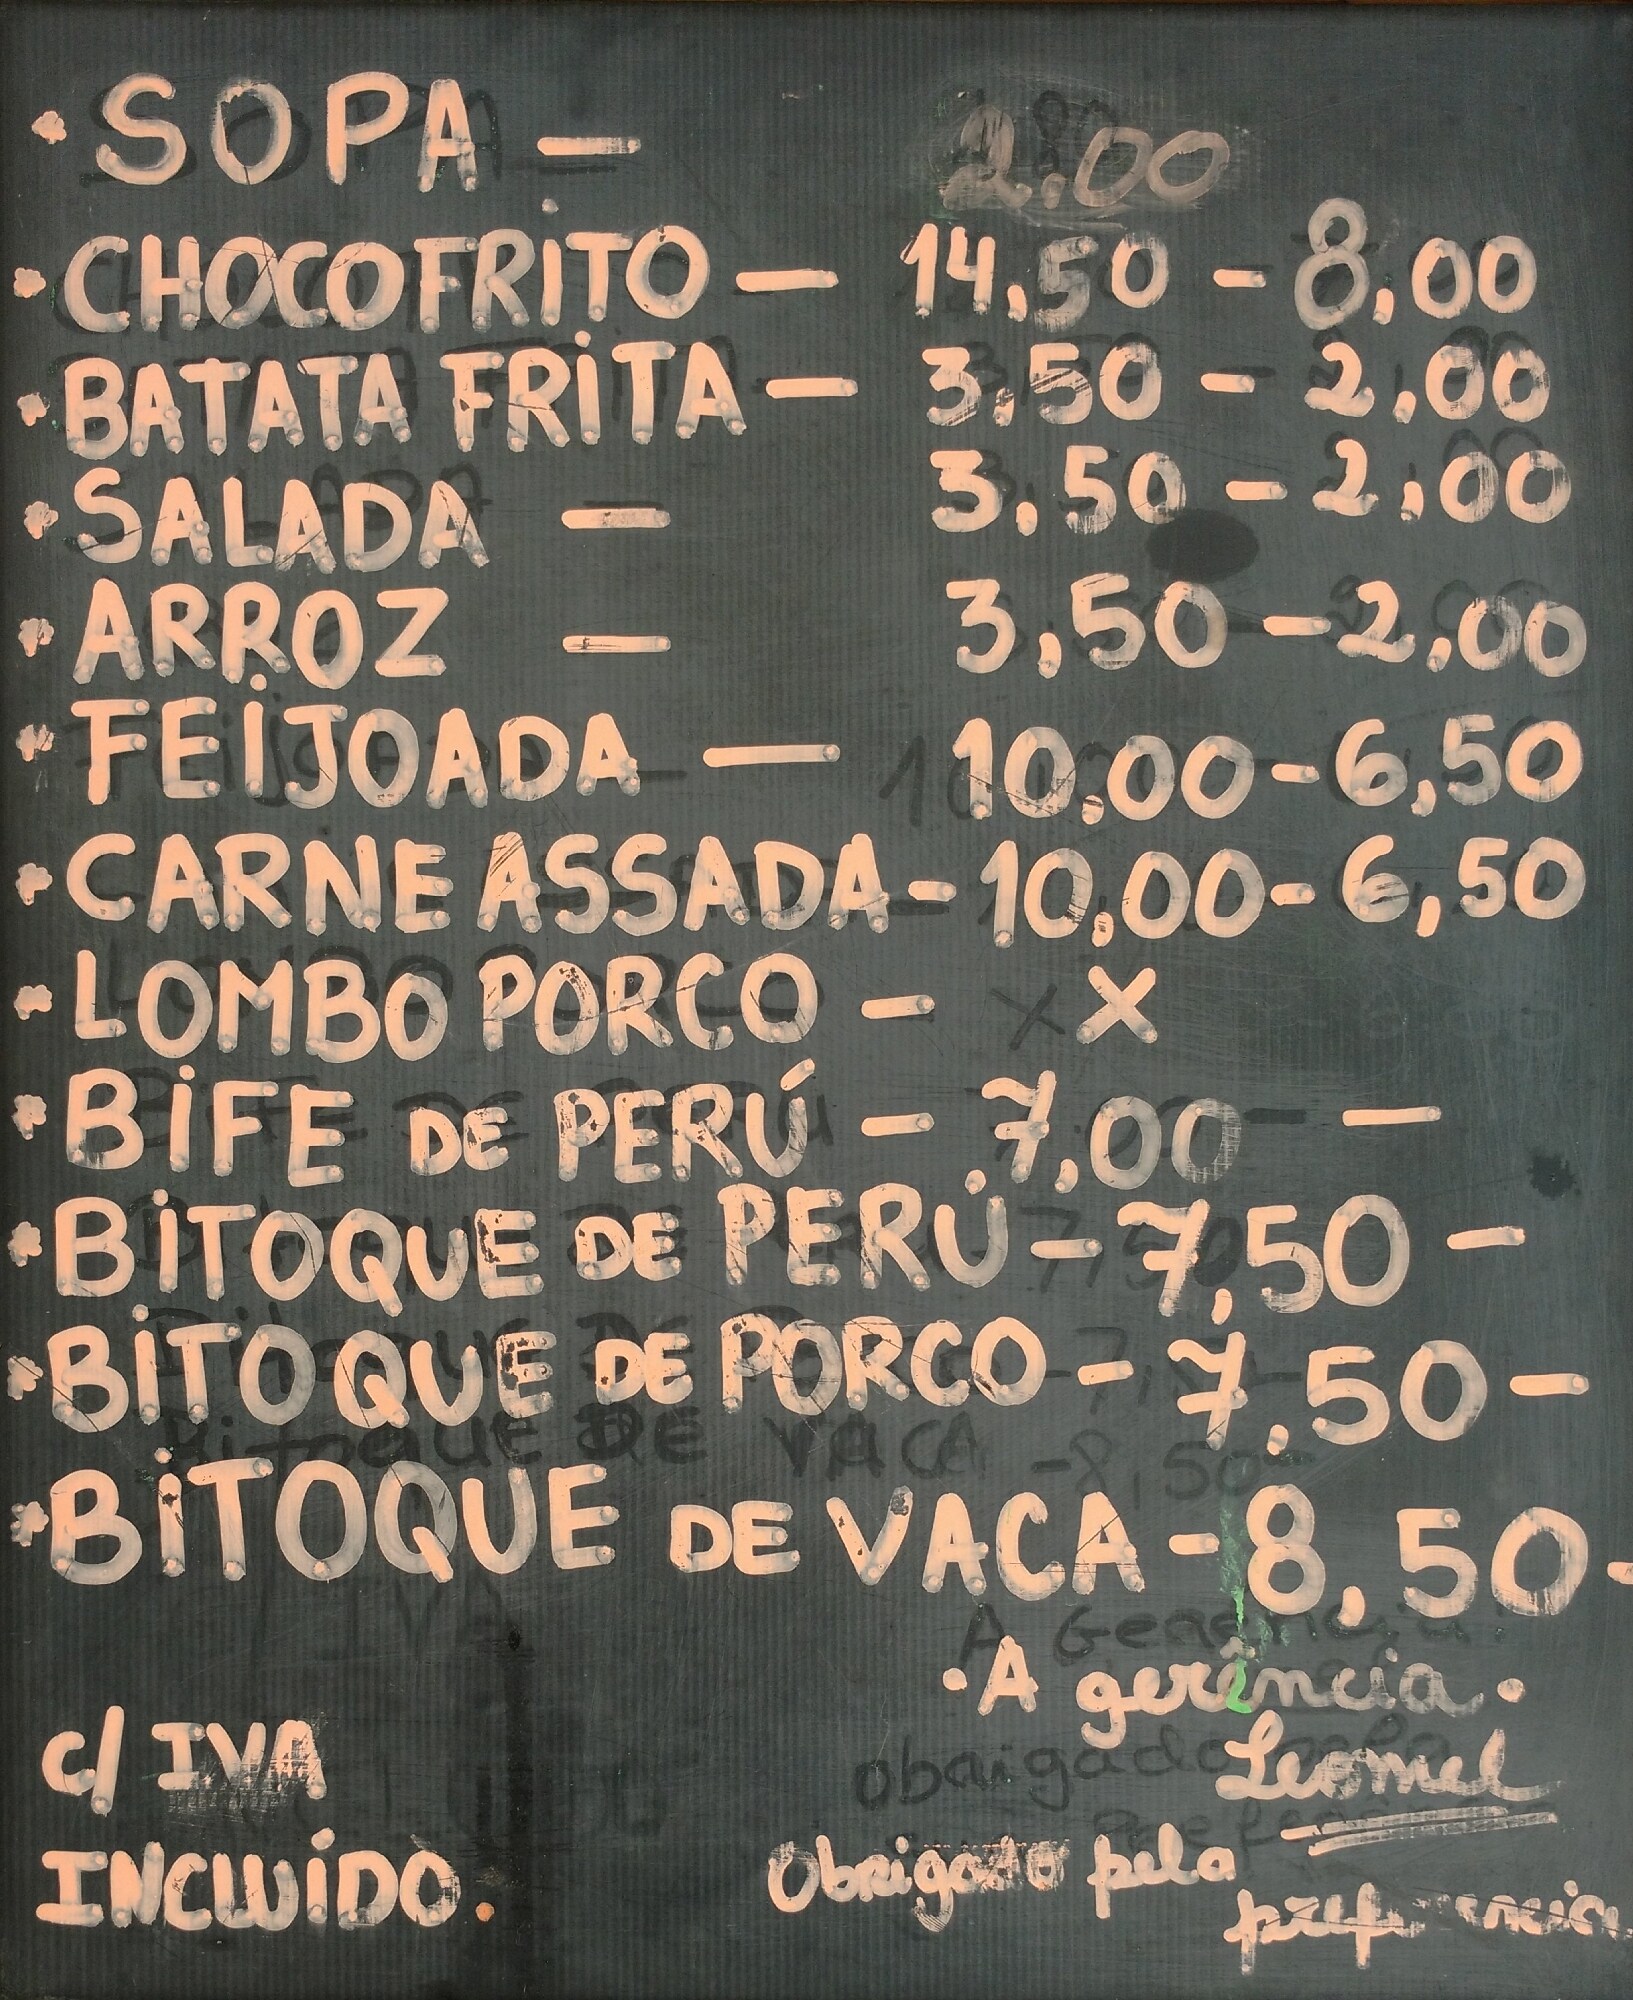 • SOPA — 2.00
• CHOCOFRITO — 14,50 - 8,00
• BATATA FRITA — 3,50 - 2,00
• SALADA — 3,50 - 2,00
• ARROZ — 3,50 - 2,00
• FEIJOADA — 10,00 - 6,50
• CARNE ASSADA - 10,00 - 6,50
• LOMBO PORCO - X
• BIFE DE PERÚ - 7,00 —
• BITOQUE DE PERÚ - 7,50 -
• BITOQUE DE PORCO - 7,50 -
• BITOQUE DE VACA - 8,50 -
• A gerência •
Leomel
c/ IVA
INCLUÍDO.
Obrigado pela
preferencia